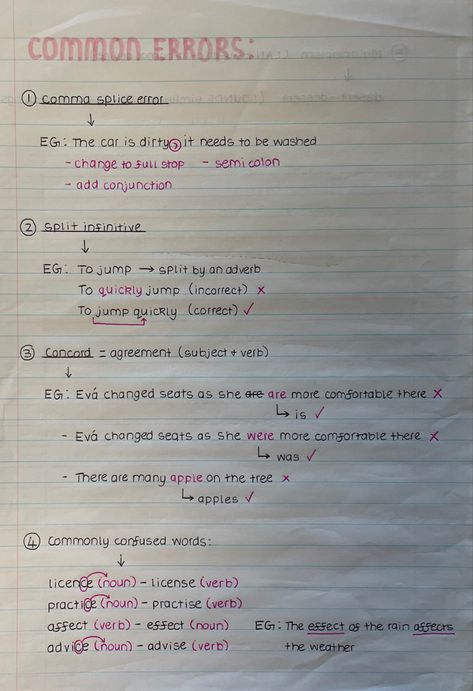 COMMON ERRORS:
① Comma splice error
↓
EG: The car is dirty, it needs to be washed
- change to full stop - semi colon
- add conjunction
② Split infinitive
↓
EG: To jump → split by an adverb
To quickly jump (incorrect) ×
To jump quickly (correct) ✓
③ Concord = agreement (subject + verb)
↓
EG: Evá changed seats as she are are more comfortable there ×
↳ is ✓
- Evá changed seats as she were more comfortable there ×
↳ was ✓
- There are many apple on the tree ×
↳ apples ✓
④ Commonly confused words:
↓
licence (noun) - license (verb)
practice (noun) - practise (verb)
affect (verb) - effect (noun) EG: The effect of the rain affects
advice (noun) - advise (verb) the weather